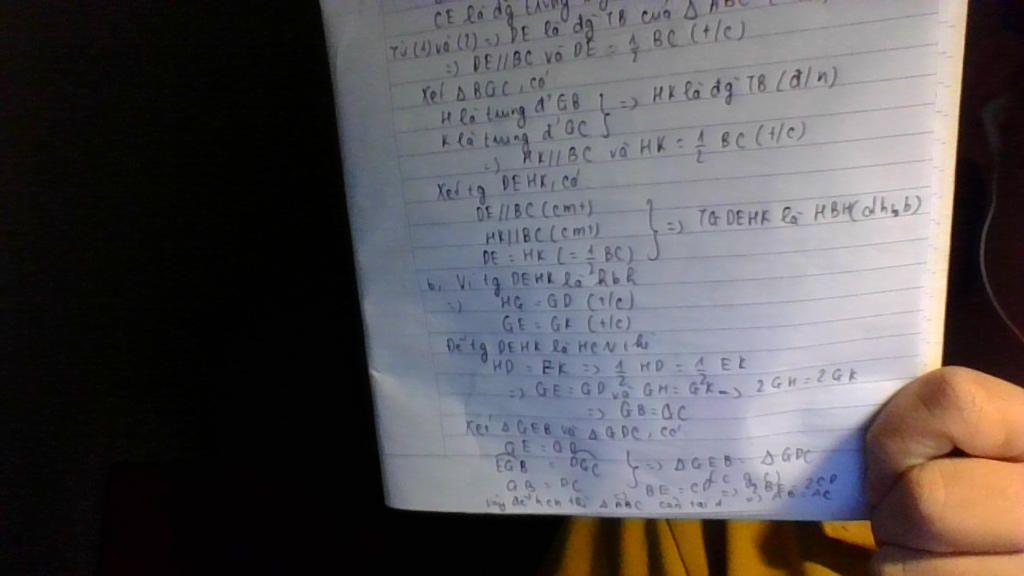 CE là đg trung
Từ (1) và (2) => DE là đg TB của Δ ABC
=> DE//BC và DE = 1/2 BC (t/c)
Xét Δ BGC, có
H là trung đ' GB
K là trung đ' GC } => HK là đg TB (đ/n)
=> HK//BC và HK = 1/2 BC (t/c)
Xét tg DEHK, có
DE//BC (cmt)
HK//BC (cmt) } => TG DEHK là HBH (dhnb)
DE = HK (= 1/2 BC)
b, Vì tg DEHK là hbh
=> HG = GD (t/c)
GE = GK (t/c)
Để tg DEHK là HCN thì
HD = EK => 1/2 HD = 1/2 EK
=> GE = GD và GH = GK => 2GH = 2GK
=> GB = GC
Xét Δ GEB và Δ GDC, có
GE = GD
EGB = DGC } => Δ GEB = Δ GDC
GB = DC
=> BE = CD => 2BE = 2CD
=> AB = AC
Vậy để hcn thì Δ ABC cân tại A